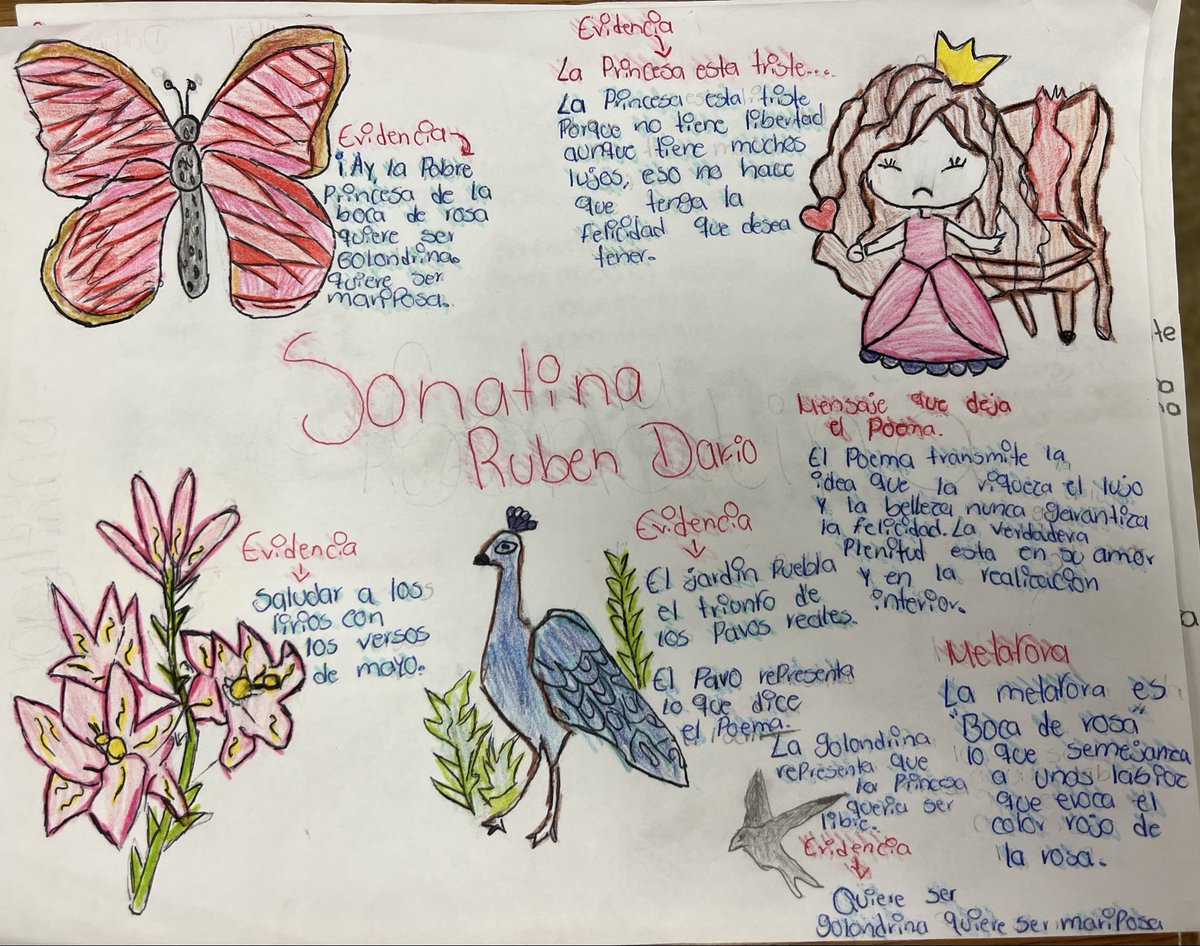 Evidencia
¡Ay la Pobre
Princesa de la
boca de rosa
quiere ser
Golondrina.
quiere ser
mariposa.
Evidencia
La Princesa esta triste...
La Princesa esta triste
Porque no tiene libertad
aunque tiene muchos
lujos, eso no hace
que tenga la
felicidad que desea
tener.
Sonatina
Ruben Dario
Mensaje que deja
el Poema.
El Poema transmite la
idea que la riqueza el lujo
y la belleza nunca garantiza
la felicidad. La verdadera
Plenitud esta en su amor
y en la realización
interior.
Evidencia
Saludar a los
lirios con
los versos
de mayo.
Evidencia
El jardin Puebla
el triunfo de
los Pavos reales.
El Pavo representa
lo que dice
el Poema.
La golondrina
representa que
la Princesa
queria ser
libre.
Evidencia
Quiere ser
golondrina quiere ser mariposa
Metafora
La metafora es
"Boca de rosa"
lo que semejanza
a unos labios
que evoca el
color rojo de
la rosa.